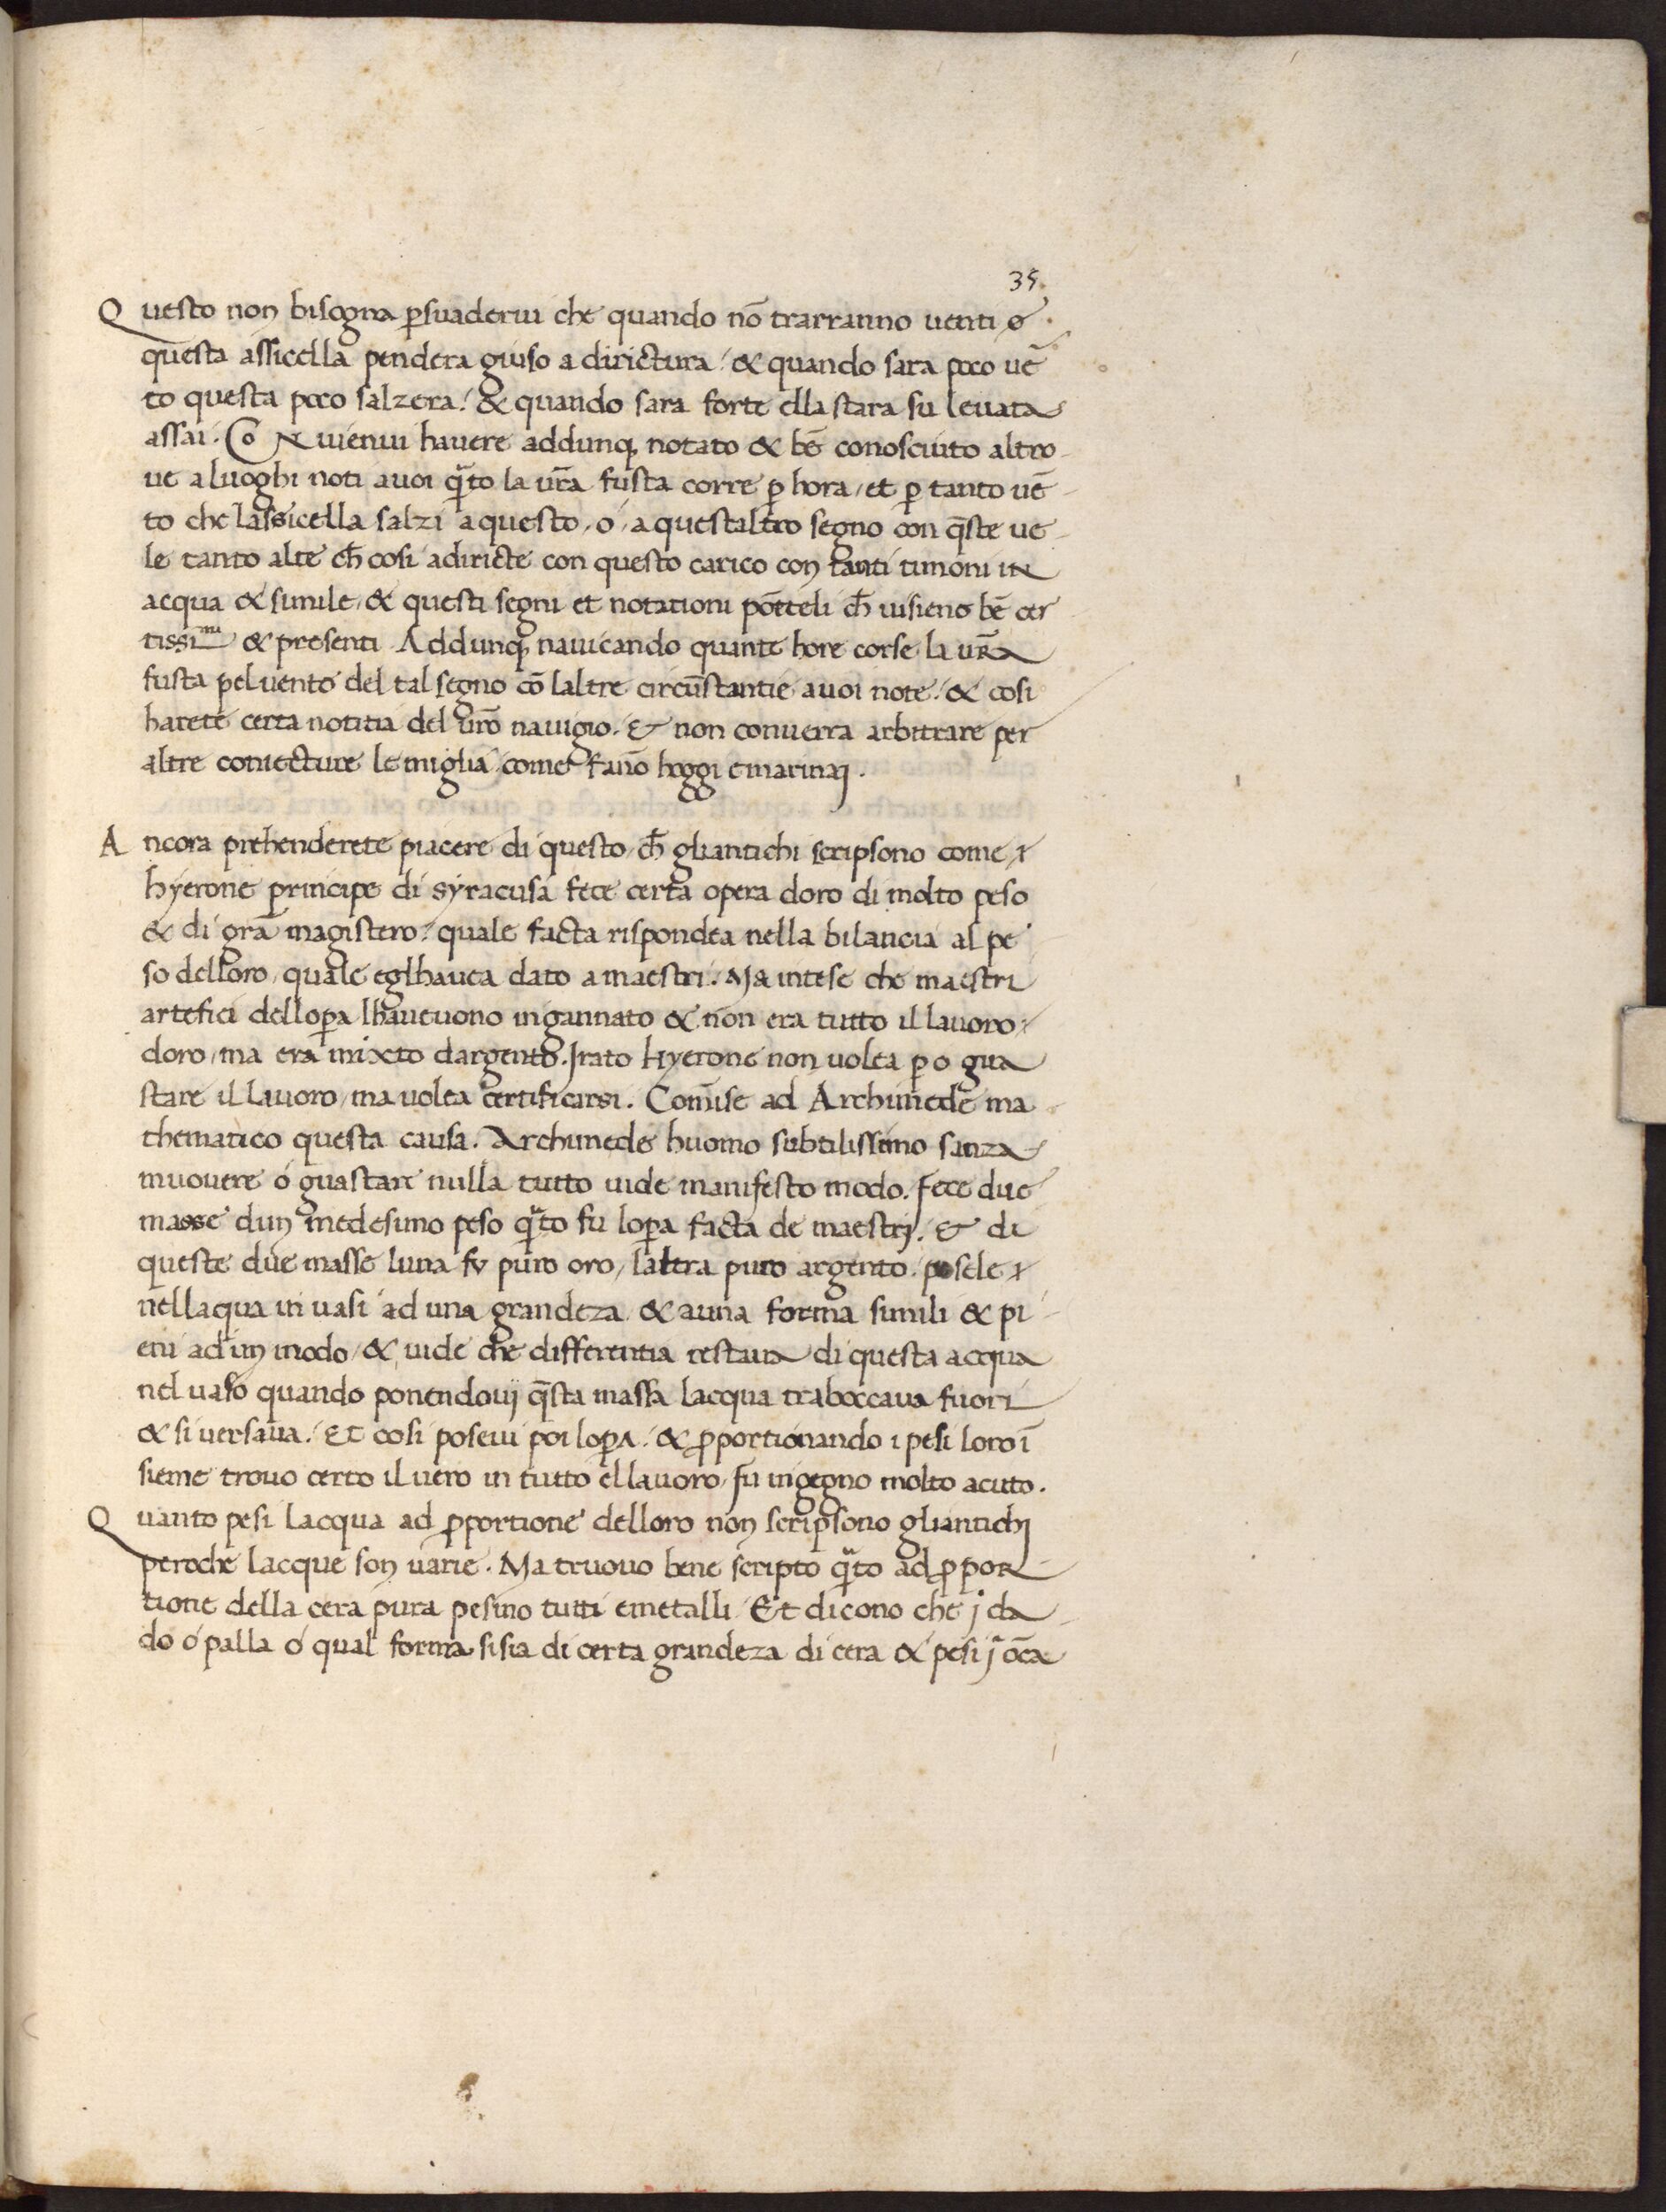 35.
Questo non bisogna ꝑsuaderui che quando nō trarranno uenti
questa assicella pendera giuso a dirictura / & quando sara poco uē
to questa poco salzera / & quando sara forte ella stara su leuata
assai. Cō uienui hauere addunqꝫ notato & bē conosciuto altro
ue a luoghi noti auoi q̄to la ur̄a fusta corre ꝑ hora / et ꝑ tanto uē
to che lassicella salzi a questo / o / a questaltro segno con q̄ste ue
le tanto alte ch̄ cosi adiricte con questo carico con tanti timoni in
acqua & simile / & questi segni et notationi pōtteli ch̄ uisieno bē cer
tissimi & presenti Addunqꝫ nauicando quante hore corse la ur̄a
fusta pel uento del tal segno cō laltre circūstantie auoi note / & cosi
harete certa notitia del ur̄o nauigio. & non conuerra arbitrare per
altre coniecture le miglia come fāno hoggi emarinaj.
Ancora prehenderete piacere di questo / ch̄ gliantichi scripsono come
hyerone principe di syracusa fece certa opera doro di molto peso
& di grā magistero / quale facta rispondea nella bilancia al pe
so delloro / quale eglhauea dato a maestri. Ma intese che maestri
artefici delloꝑa lhaueuono ingannato & non era tutto il lauoro
doro / ma era mixto dargento. Irato Hyerone non uolea ꝑ o gua
stare il lauoro / ma uolea certificarsi. Com̄ise ad Archimede ma
thematico questa causa. Archimede huomo subtilissimo sanza
muouere o guastare nulla tutto uide manifesto modo. Fece due
masse dun medesimo peso q̄to fu loꝑa facta de maestrj. & di
queste due masse luna fu puro oro / laltra puro argento. posele
nellaqua in uasi ad una grandeza & auna forma simili & pi
eni ad un modo / & uide che differentia restaua di questa acqua
nel uaso quando ponendouj q̄sta massa lacqua traboccaua fuori
& si uersaua. Et cosi poseui poi loꝑa. & ꝓportionando i pesi loro ī
sieme trouo certo il uero in tutto el lauoro / fu ingegno molto acuto.
Quanto pesi lacqua ad ꝓportione delloro non scripsono gliantichj
peroche lacque son uarie. Ma truouo bene scripto q̄to ad ꝓpor
tione della cera pura pesino tutti emetalli / Et dicono che j da
do o palla o qual forma sisia di certa grandeza di cera & pesi j ōca